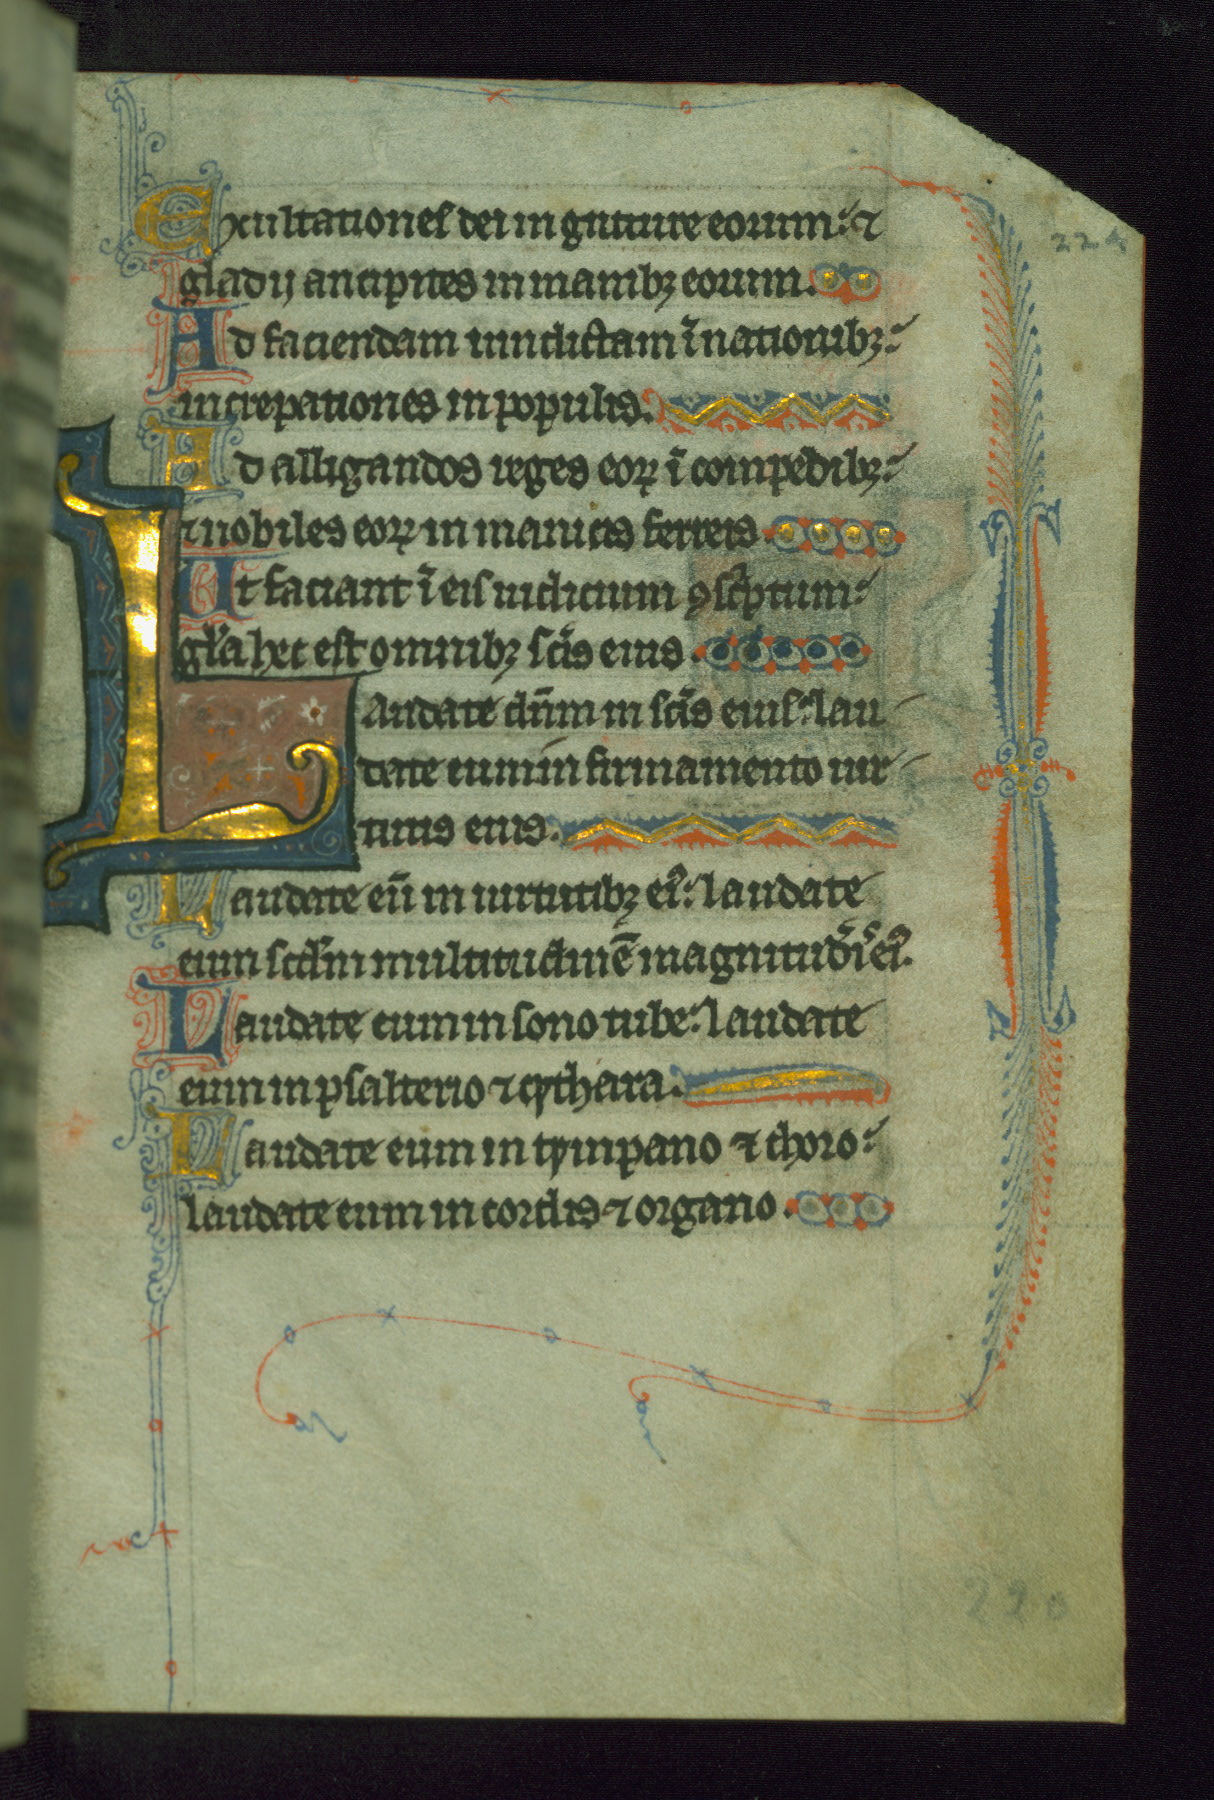 224
Exultationes dei in gutture eorum: ⁊
gladij ancipites in manibꝫ eorum.
Ad faciendam uindictam ī nationibꝫ:
increpationes in populis.
Ad alligandos reges eoꝝ ī compedibꝫ:
⁊ nobiles eoꝝ in manicis ferreis.
Ut faciant ī eis iudicium ꝯsc̄ptum:
gl̄a hec est omnibꝫ sc̄is eius.
Laudate dn̄m in sc̄is eius: lau
date eum in firmamento uir
tutis eius.
Laudate eū in uirtutibꝫ ei᷒: laudate
eum scd̄m multitudinē magnitud̄is ei᷒.
Laudate eum in sono tube: laudate
eum in psalterio ⁊ cythara.
Laudate eum in tympano ⁊ choro:
laudate eum in cordis ⁊ organo.